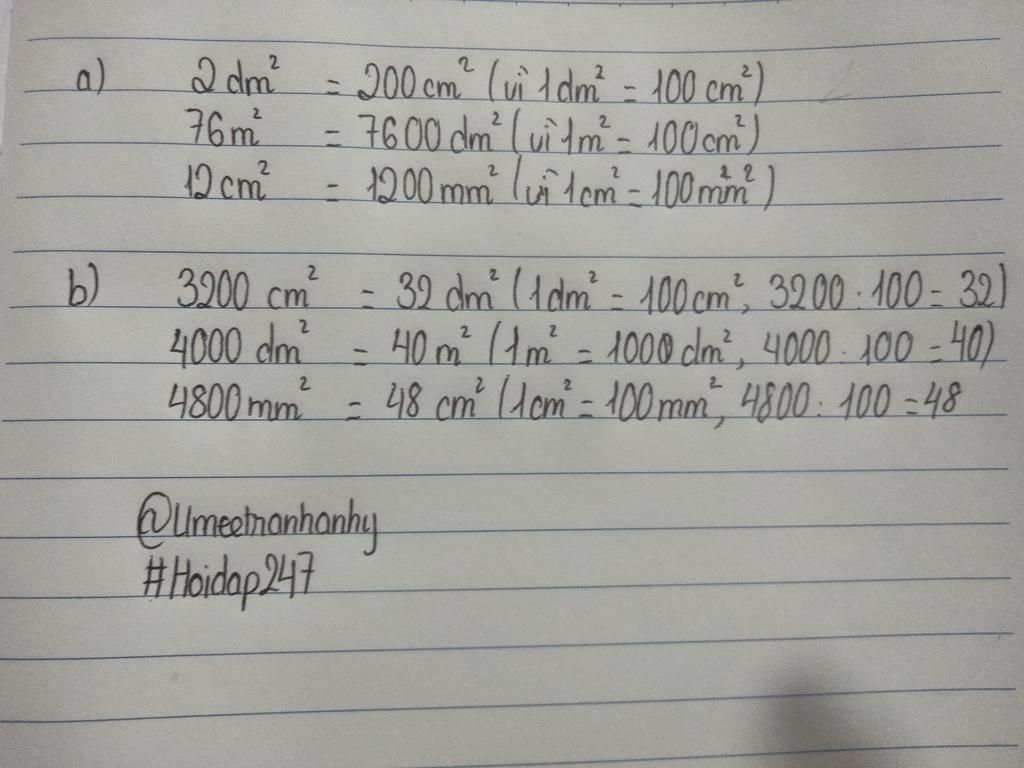 a) 2 dm² = 200 cm² (vì 1dm² = 100 cm²)
76m² = 7600 dm² (vì 1m² = 100cm²)
12 cm² = 1200mm² (vì 1cm² = 100m²m²)
b) 3200 cm² = 32 dm² (1dm² = 100cm², 3200 : 100 = 32)
4000 dm² = 40 m² (1m² = 1000 dm², 4000 : 100 = 40)
4800mm² = 48 cm² (1cm² = 100mm², 4800 : 100 = 48
@Umeetnanhanhy
#Hoidap247